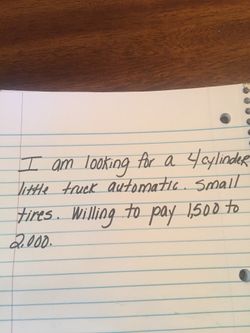 I am looking for a 4 cylinder
little truck automatic. Small
tires. Willing to pay 1,500 to
2,000.